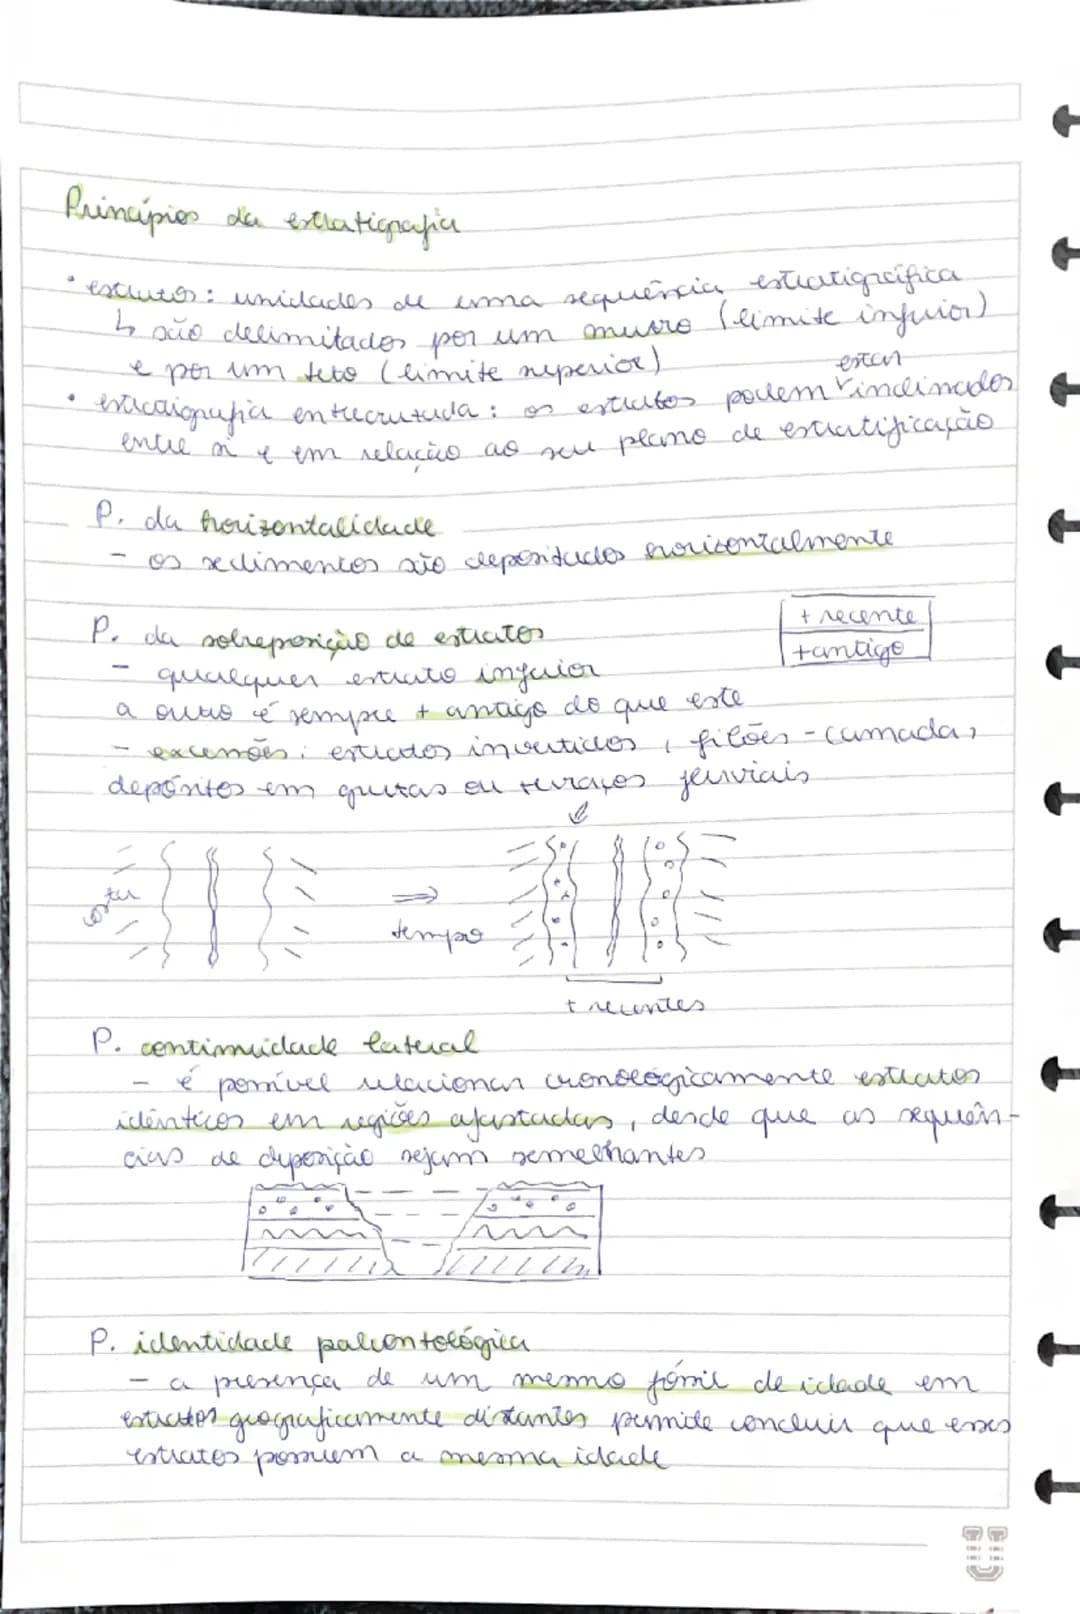 Princípios da estratigrafia
• estratos: unidades de uma sequência estratigráfica
↳ são delimitados por um muro (limite inferior)
e por um teto (limite superior)
estar
• estratigrafia entrecruzada: os estratos podem ᵛ inclinados
entre si e em relação ao seu plano de estratificação
P. da horizontalidade
- os sedimentos são depositados horizontalmente
+ recente
P. da sobreposição de estratos
+ antigo
- qualquer estrato inferior
a outro é sempre + antigo do que este
- excessões: estratos invertidos, filões-camada,
depósitos em grutas ou terraços fluviais
⇒
tempo
+ recentes
P. continuidade lateral
- é possível relacionar cronologicamente estratos
idênticos em regiões afastadas, desde que as sequên-
cias de deposição sejam semelhantes
P. identidade paleontológica
- a presença de um mesmo fóssil de idade em
estratos geograficamente distantes permite concluir que esses
estratos possuem a mesma idade
U